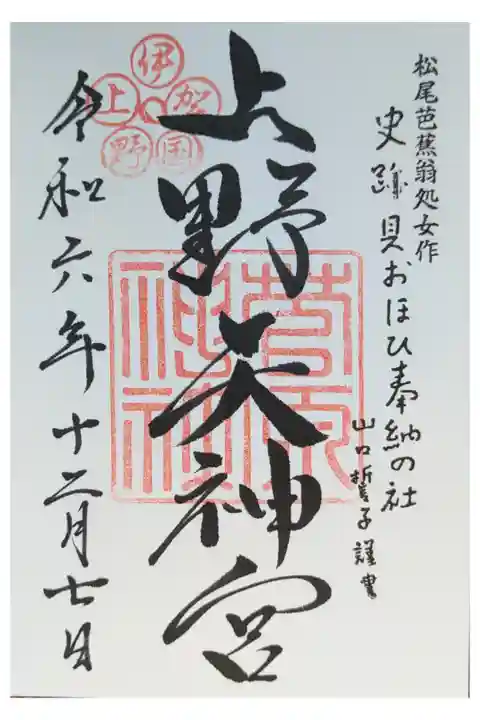 松尾芭蕉翁処女作
史跡貝おほひ奉納の社
山口誓子謹書
上野天神宮
伊賀国上野
菅原神社
令和六年十二月七日